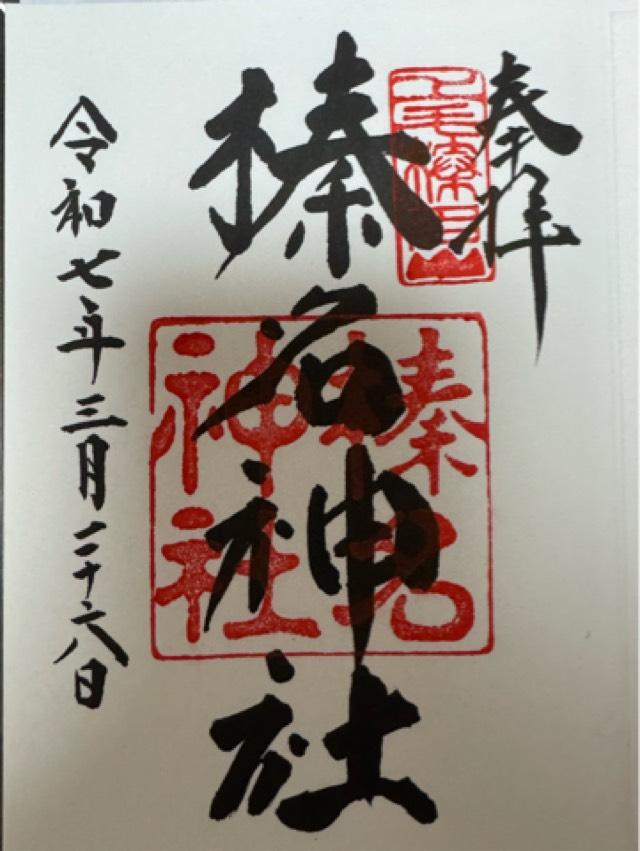 奉拝
榛名神社
榛名
神社
令和七年三月二十六日